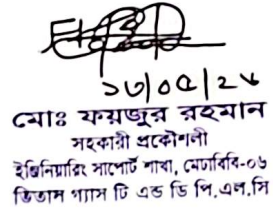 ১৮/০৫/২৫
মোঃ ফয়জুর রহমান
সহকারী প্রকৌশলী
ইঞ্জিনিয়ারিং সাপোর্ট শাখা, মেটাবিবি-০৬
তিতাস গ্যাস টি এন্ড ডি পি.এল.সি